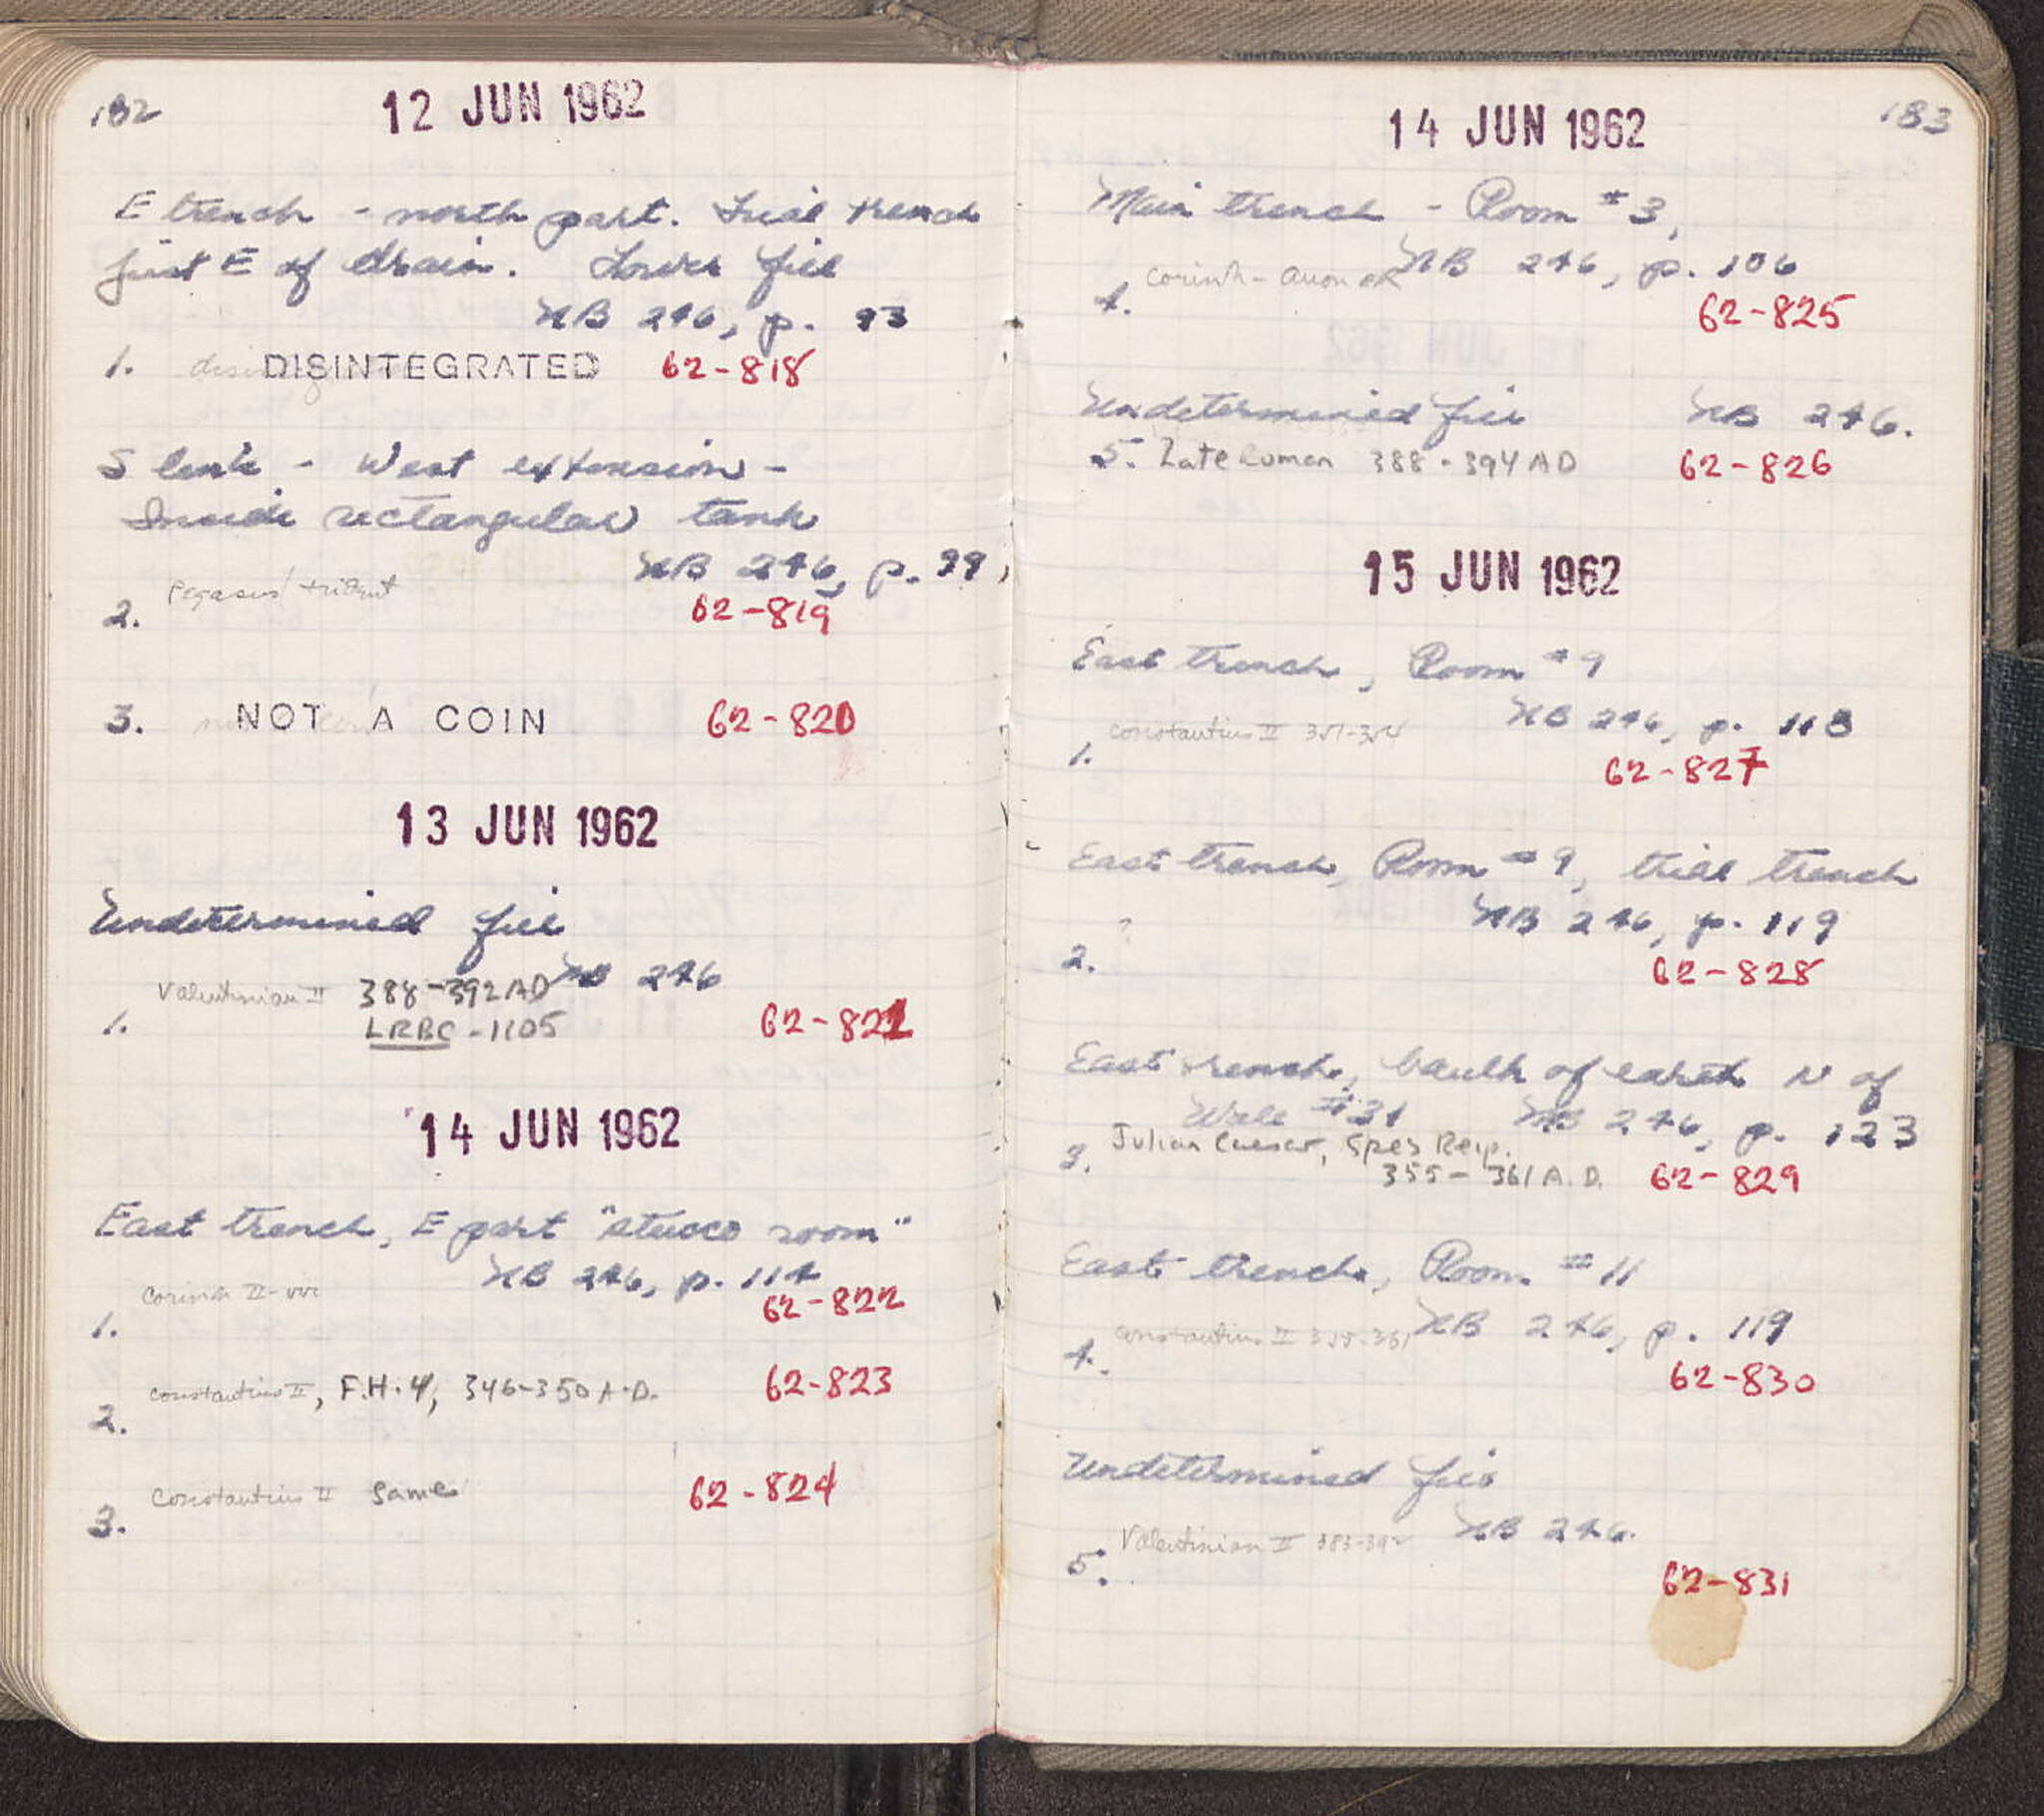 182
12 JUN 1962
E trench - north part. Trial trench
just E of drain. Lower fill
NB 246, p. 93
1. DISINTEGRATED 62-818
S - West extension -
Inside rectangular tank
NB 246, p. 99
Pegasus/trident
2. 62-819
3. NOT A COIN 62-820
13 JUN 1962
Undetermined fill
NB 246
Valentinian II 388-392 AD
1. LRBC - 1105 62-821
14 JUN 1962
East trench, E part "stucco room"
NB 246, p. 114
Corinth II-vir 62-822
1.
Constantius II, F.H.4, 346-350 A.D. 62-823
2.
Constantius II same 62-824
3.
183
14 JUN 1962
Main trench - Room #3,
NB 246, p. 106
Corinth -
4. 62-825
Undetermined fill NB 246.
5. Late Roman 388-394 AD 62-826
15 JUN 1962
East trench, Room #9
NB 246, p. 118
Constantius II 351-354
1. 62-827
East trench, Room #9, trial trench
? NB 246, p. 119
2. 62-828
East trench, baulk of earth N of
Wall #31 NB 246, p. 123
Julian Caesar, Spes Reip.
3. 355-361 A.D. 62-829
East trench, Room #11
NB 246, p. 119
Constantius II 355-361
4. 62-830
Undetermined fill
NB 246.
Valentinian II 383-392
5. 62-831